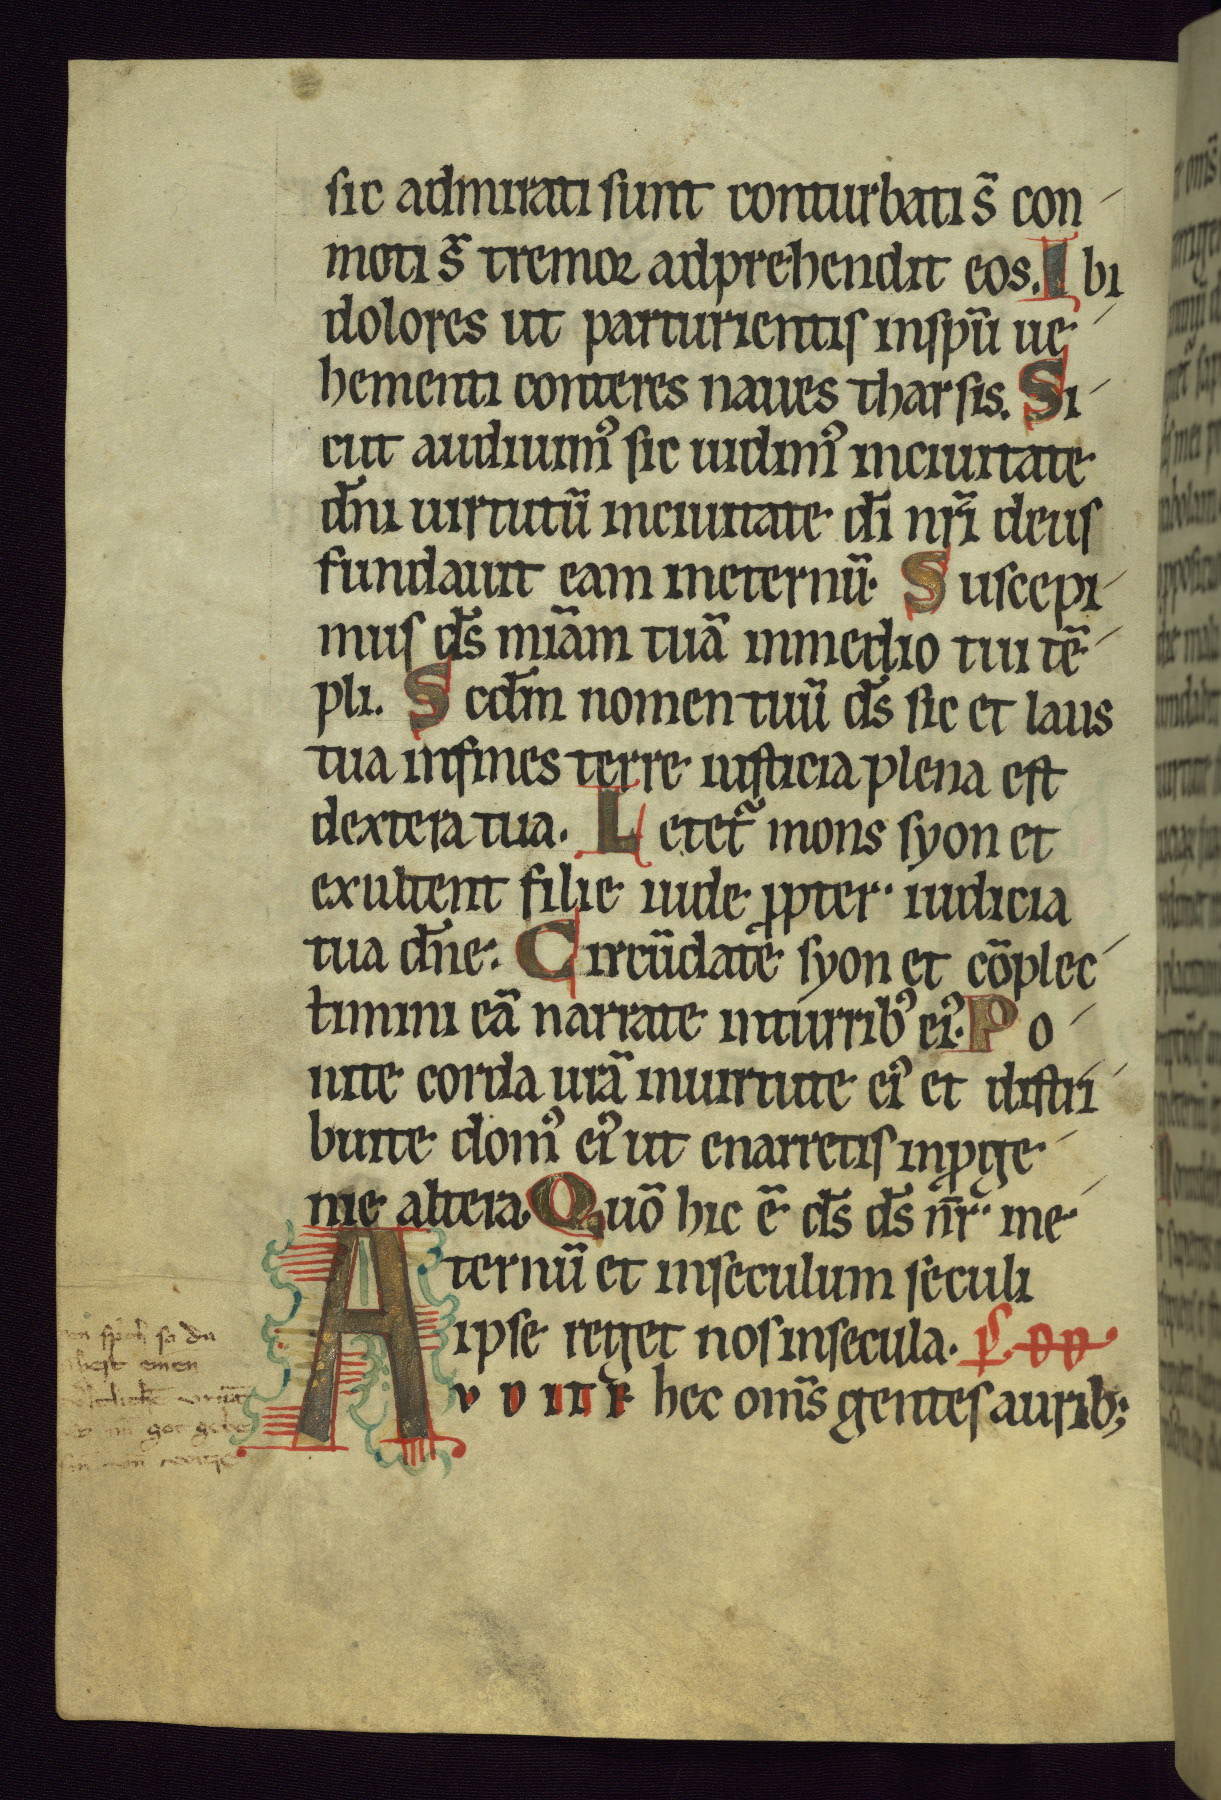 sic admirati sunt conturbati s̄ con
moti s̄ tremor adprehendit eos. I bi
dolores ut parturientis inspū ue
hementi conteres naues tharsis. Si
cut audiuimꝰ sic uidimꝰ inciuitate
dn̄i uirtutū inciuitate dī nr̄i deus
fundauit eam ineternū. S uscepi
mus ds̄ miām tuā inmedio tui tē
pli. S cdm̄ nomen tuū ds̄ sic et laus
tua infines terre iusticia plena est
dextera tua. L etet᷑ mons syon et
exultent filie iude ꝓpter iudicia
tua dn̄e. Circūdate syon et cōplec
timini eā narrate inturribꝰ eiꝰ. P o
nite corda urā inuirtute eiꝰ et distri
buite domꝰ eiꝰ ut enarretis inꝓge
nie altera Quō hic ē ds̄ ds̄ nr̄ ine
ternū et inseculum seculi
ipse reget nos insecula. ps̄
AVDITE hec om̄s gentes aurib;
so du
hest einen
got gebe